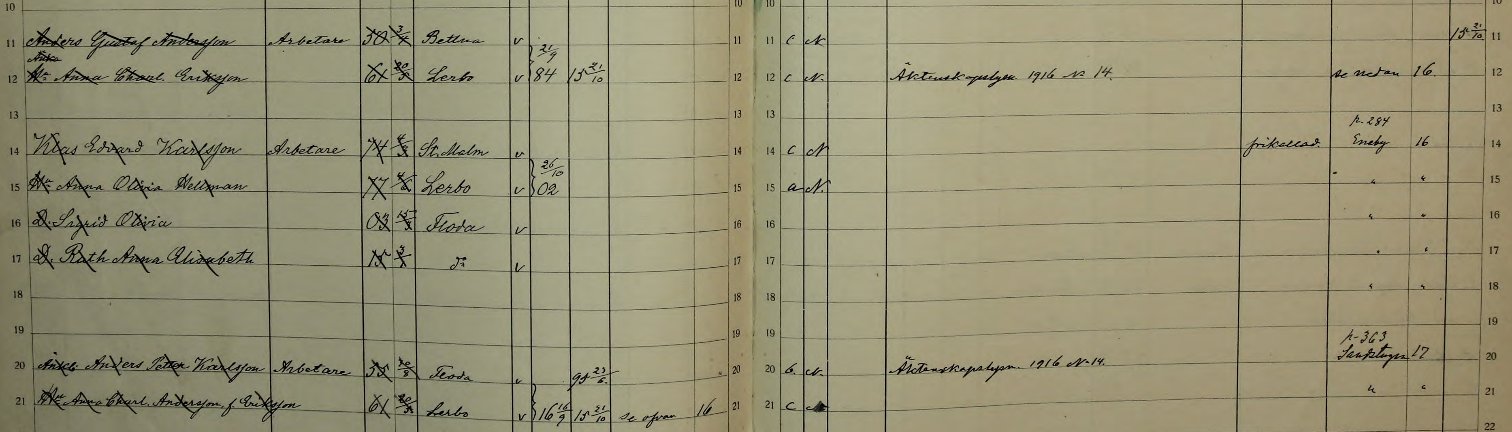 10 10 10 10
11 Anders Gustaf Andersson Arbetare 50 3/4 Bettna v 11 11 c N. 15 21/10 11
Änka
12 Hu. Anna Charl. Eriksson 61 20/3 Lerbo v 21/9 84 15 21/10 12 12 c N. Äktenskapslysn. 1916 No 14. se nedan 16. 12
13 13 13 13
p. 284
14 Klas Edvard Karlsson Arbetare 74 St. Malm v 14 14 c N frikallad. Eneby 16 14
15 Hu. Anna Olivia Hellman 77 Lerbo v 26/10 02 15 15 a N. " " 15
16 D. Sigrid Olivia 03 Floda v 16 16 " " 16
17 D. Ruth Anna Elisabeth 15 do v 17 17 " " 17
18 18 18 " " 18
19 19 19 19
p. 363
20 Änkl. Anders Petter Karlsson Arbetare 55 Floda v 95 23/6 20 20 b. N. Äktenskapslysn. 1916 No 14. 17 20
21 Hu. Anna Charl. Andersson f. Eriksson 61 20/3 Lerbo v 16 16/9 15 21/10 se ofvan 16 21 21 c " " 21
22